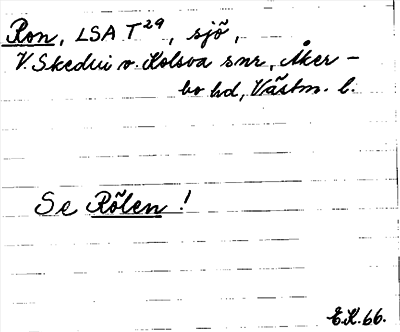 Ron, LSA T29, sjö,
V. Skedvi v. Kolsva snr, Åker-
bo hd, Västm. l.
Se Rölen!
E.K. 66.